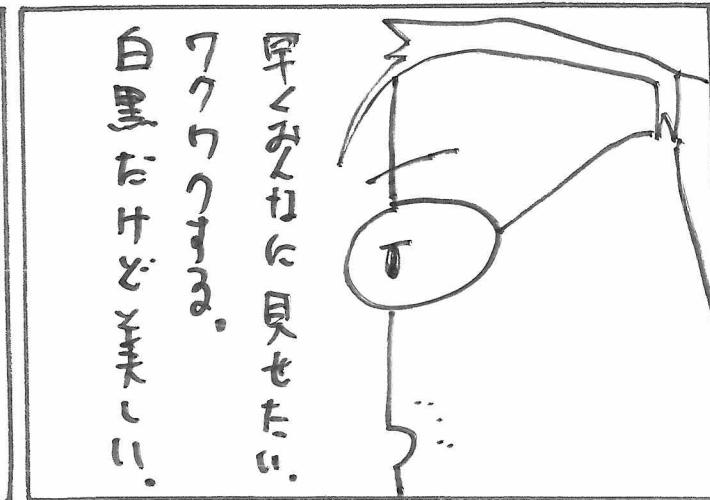 早くみんなに見せたい.
ワクワクする.
白黒だけど美しい.